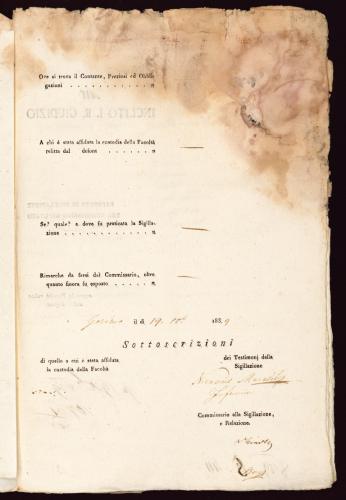 Ove si trova il Contante, Preziosi ed Obbli-
gazioni . . . . . . . . . . . . »
A chi è stata affidata la custodia della Facoltà
relitta dal defonto . . . . . . . »
Se? quale? e dove fu praticata la Sigilla-
zione . . . . . . . . . . . . . »
Rimarche da farsi dal Commissario, oltre
quanto finora fu esposto . . . . . »
il dì 19 183 9
Sottoscrizioni
di quello a cui è stata affidata
la custodia della Facoltà
dei Testimonj della
Sigillazione
Commissario alla Sigillazione,
e Relazione.